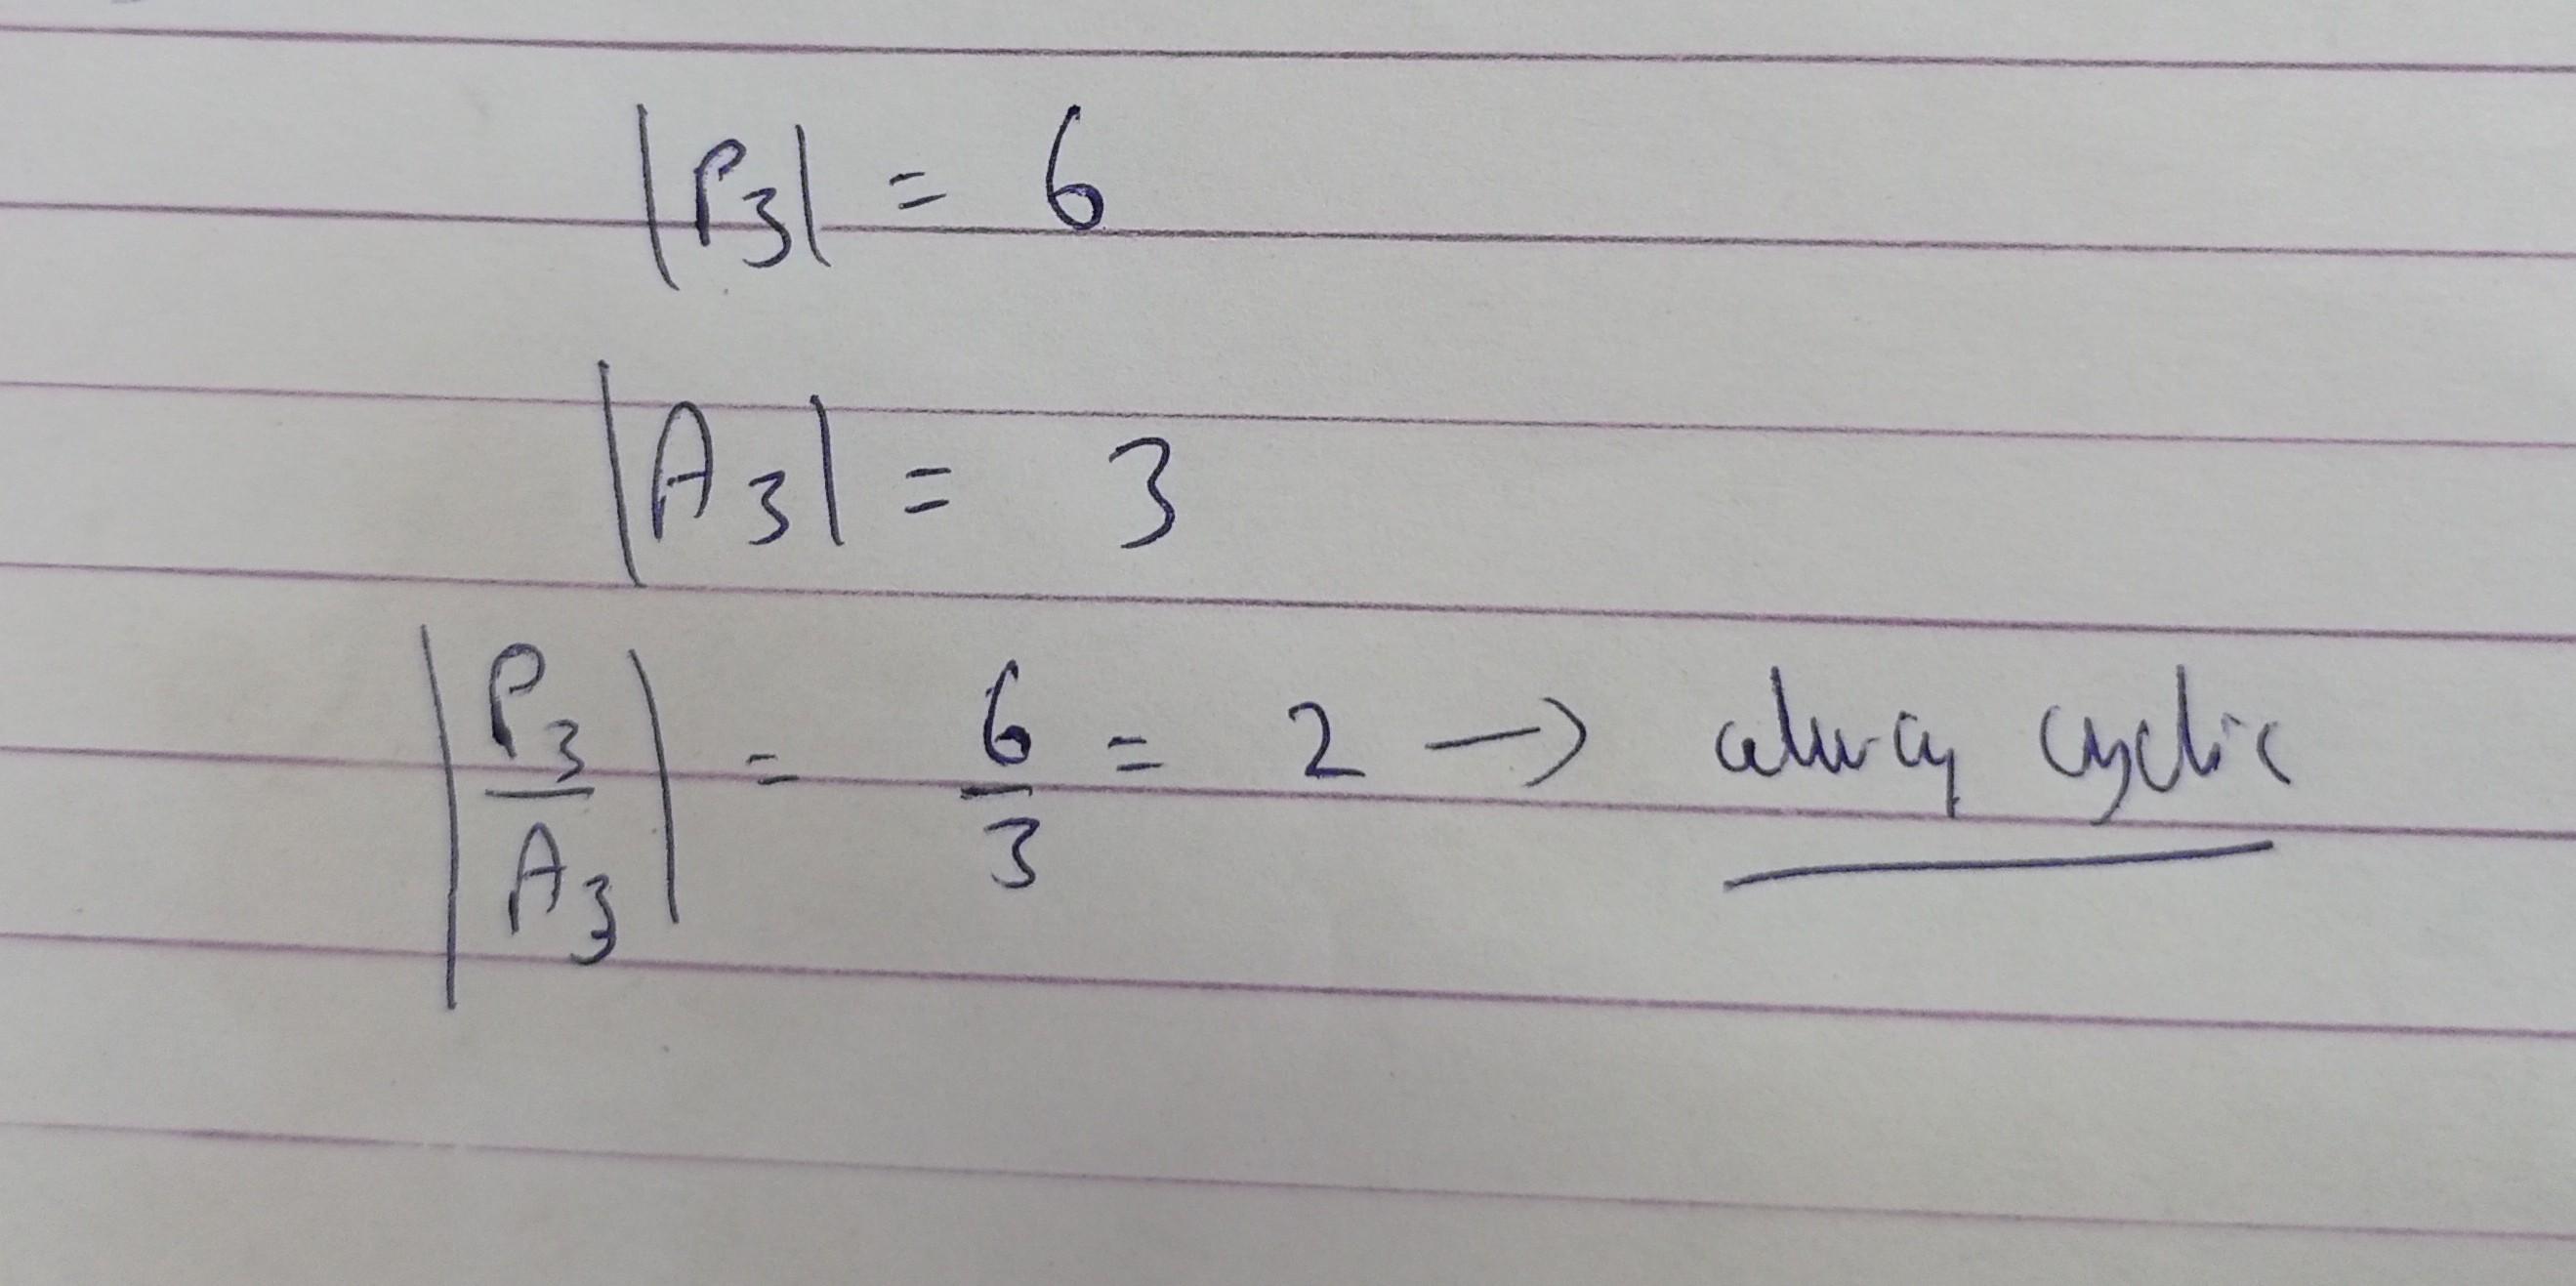 |P₃| = 6
|A₃| = 3
|P₃/A₃| = 6/3 = 2 → always cyclic